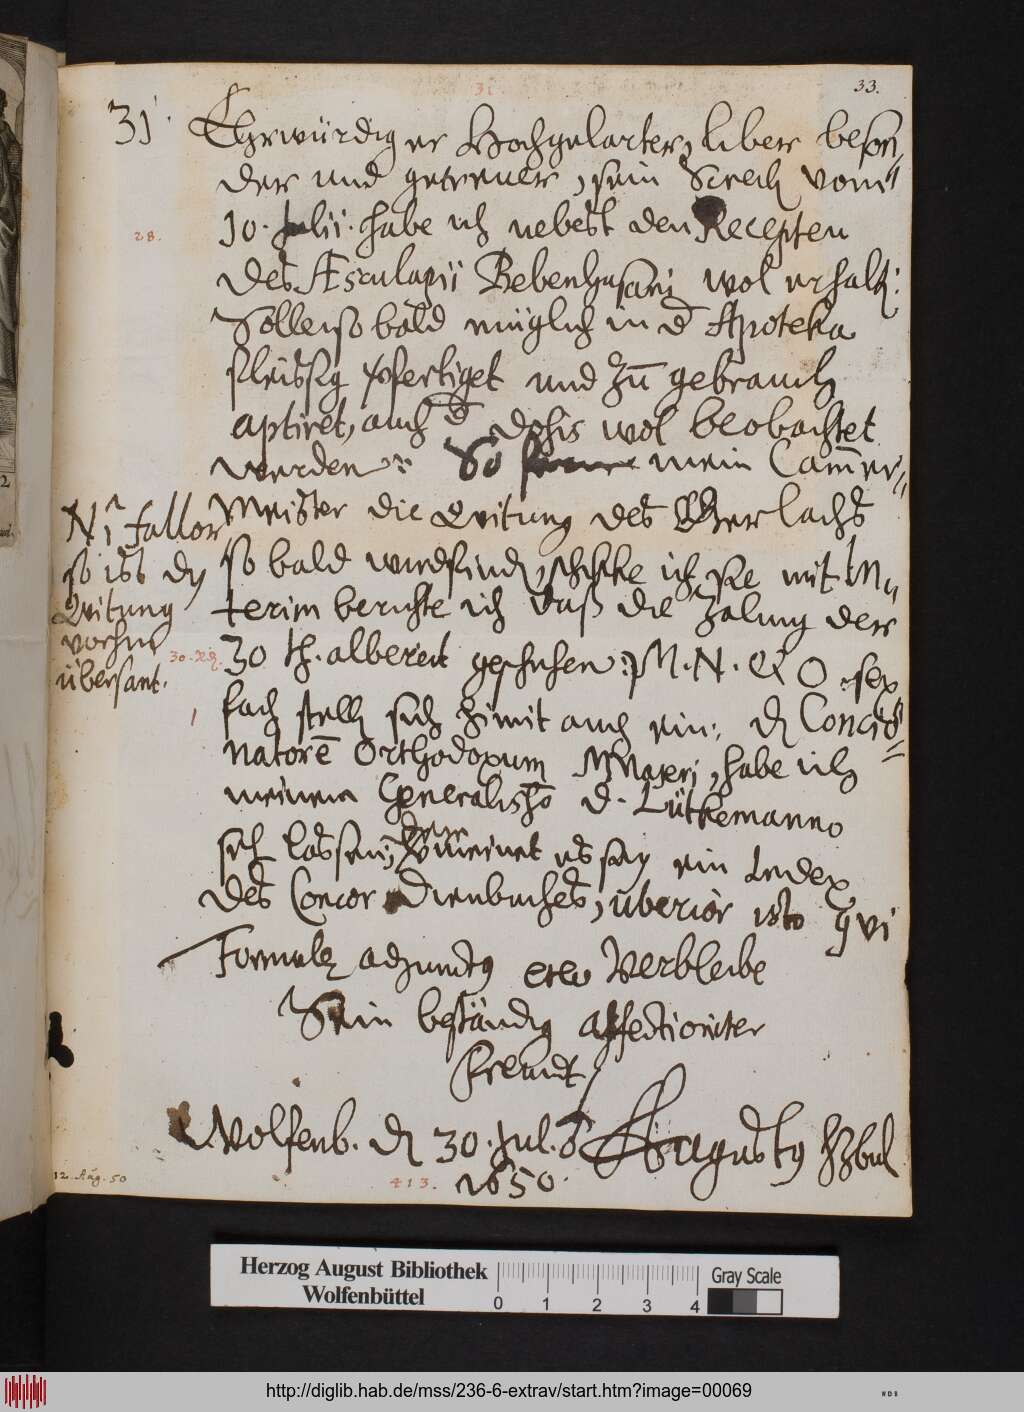 33.
31.
31. Ehrwürdiger Hochgelarter, liber beson„
der und getrewer, sein Schreib. vom
28.
10. Julii. habe ich nebest den Recepten
des Æsculapii Bebenhusani wol erhalt:
Sollen so bald müglich in d Apoteka
fleissig verfertiget und zu gebrauch
aptiret, auch d dosis wol beobachtet
werden. So mein Cammer„
Meister die Qvitung des Gerlachs
so bald wird finden, schicke ich sie mit. In„
terim berichte ich daß die Zalung der
30 th. albereit geschehen: M. N. E O sex
fach stell sich himit auch ein: d Concio
natorē Orthodoxum M Majeri, habe ich
meinem Generalissō d. Lütkemanno
sehen lassen, der meinet es sey ein Index
des Concordienbuches, uberior isto qvi
Formulæ adjunctus etc verbleibe
Sein beständig affectioniter
Freundt
Wolfenb. d 30. Jul. Augustus HzBuL
1650.
Ni fallor
so ist dy
Qvitung
vorhin
übersant.
30.
12. Aug. 50
413.
Herzog August Bibliothek
Wolfenbüttel
0 1 2 3 4
Gray Scale
http://diglib.hab.de/mss/236-6-extrav/start.htm?image=00069